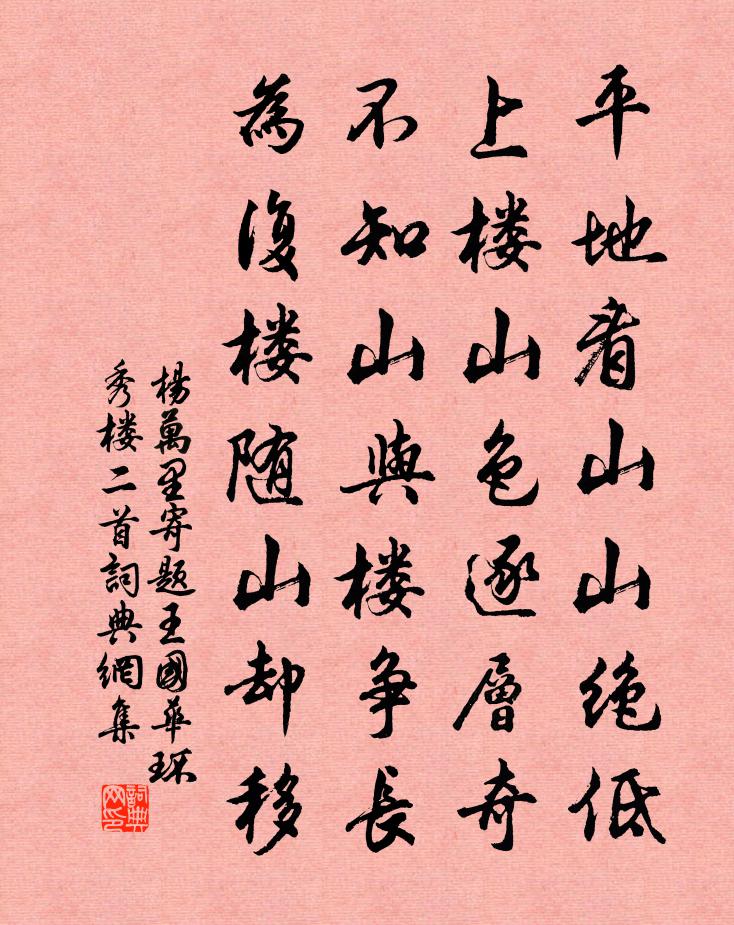 平地看山山绝低
上楼山色逐層奇
不知山與楼争長
為復楼随山却移
楊萬里寄題王國華环
秀楼二首詞典網集
詞典网印